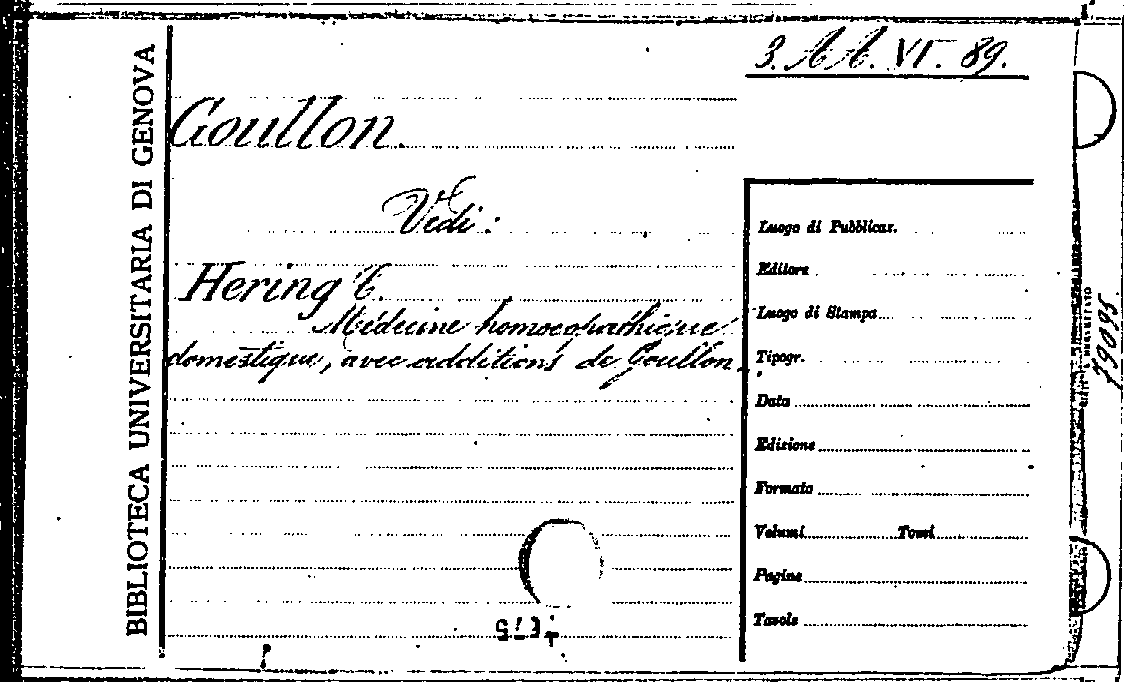 3. A A. VI. 89.
BIBLIOTECA UNIVERSITARIA DI GENOVA
Goullon.
Vedi:
Hering C.
Médecine homoeopathique
domestique, avec additions de Goullon.
Luogo di Pubblicaz.
Editore
Luogo di Stampa
Tipogr.
Data
Edizione
Formato
Volumi Tomi
Pagine
Tavole
79095